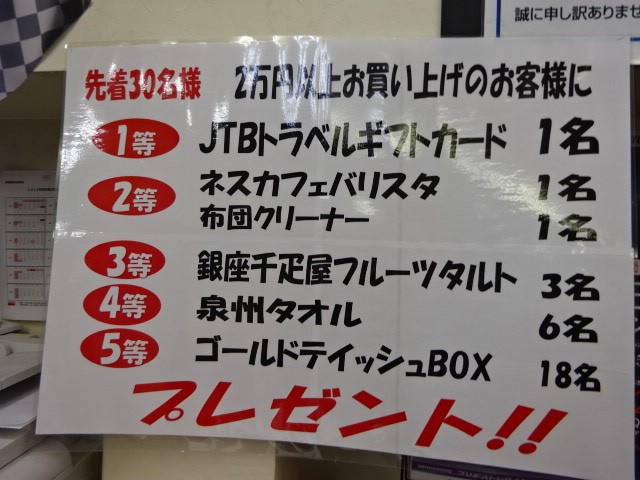 誠に申し訳ありませ
先着30名様 2万円以上お買い上げのお客様に
1等 JTBトラベルギフトカード 1名
2等 ネスカフェバリスタ 1名
布団クリーナー 1名
3等 銀座千疋屋フルーツタルト 3名
4等 泉州タオル 6名
5等 ゴールドテイッシュBOX 18名
プレゼント!!